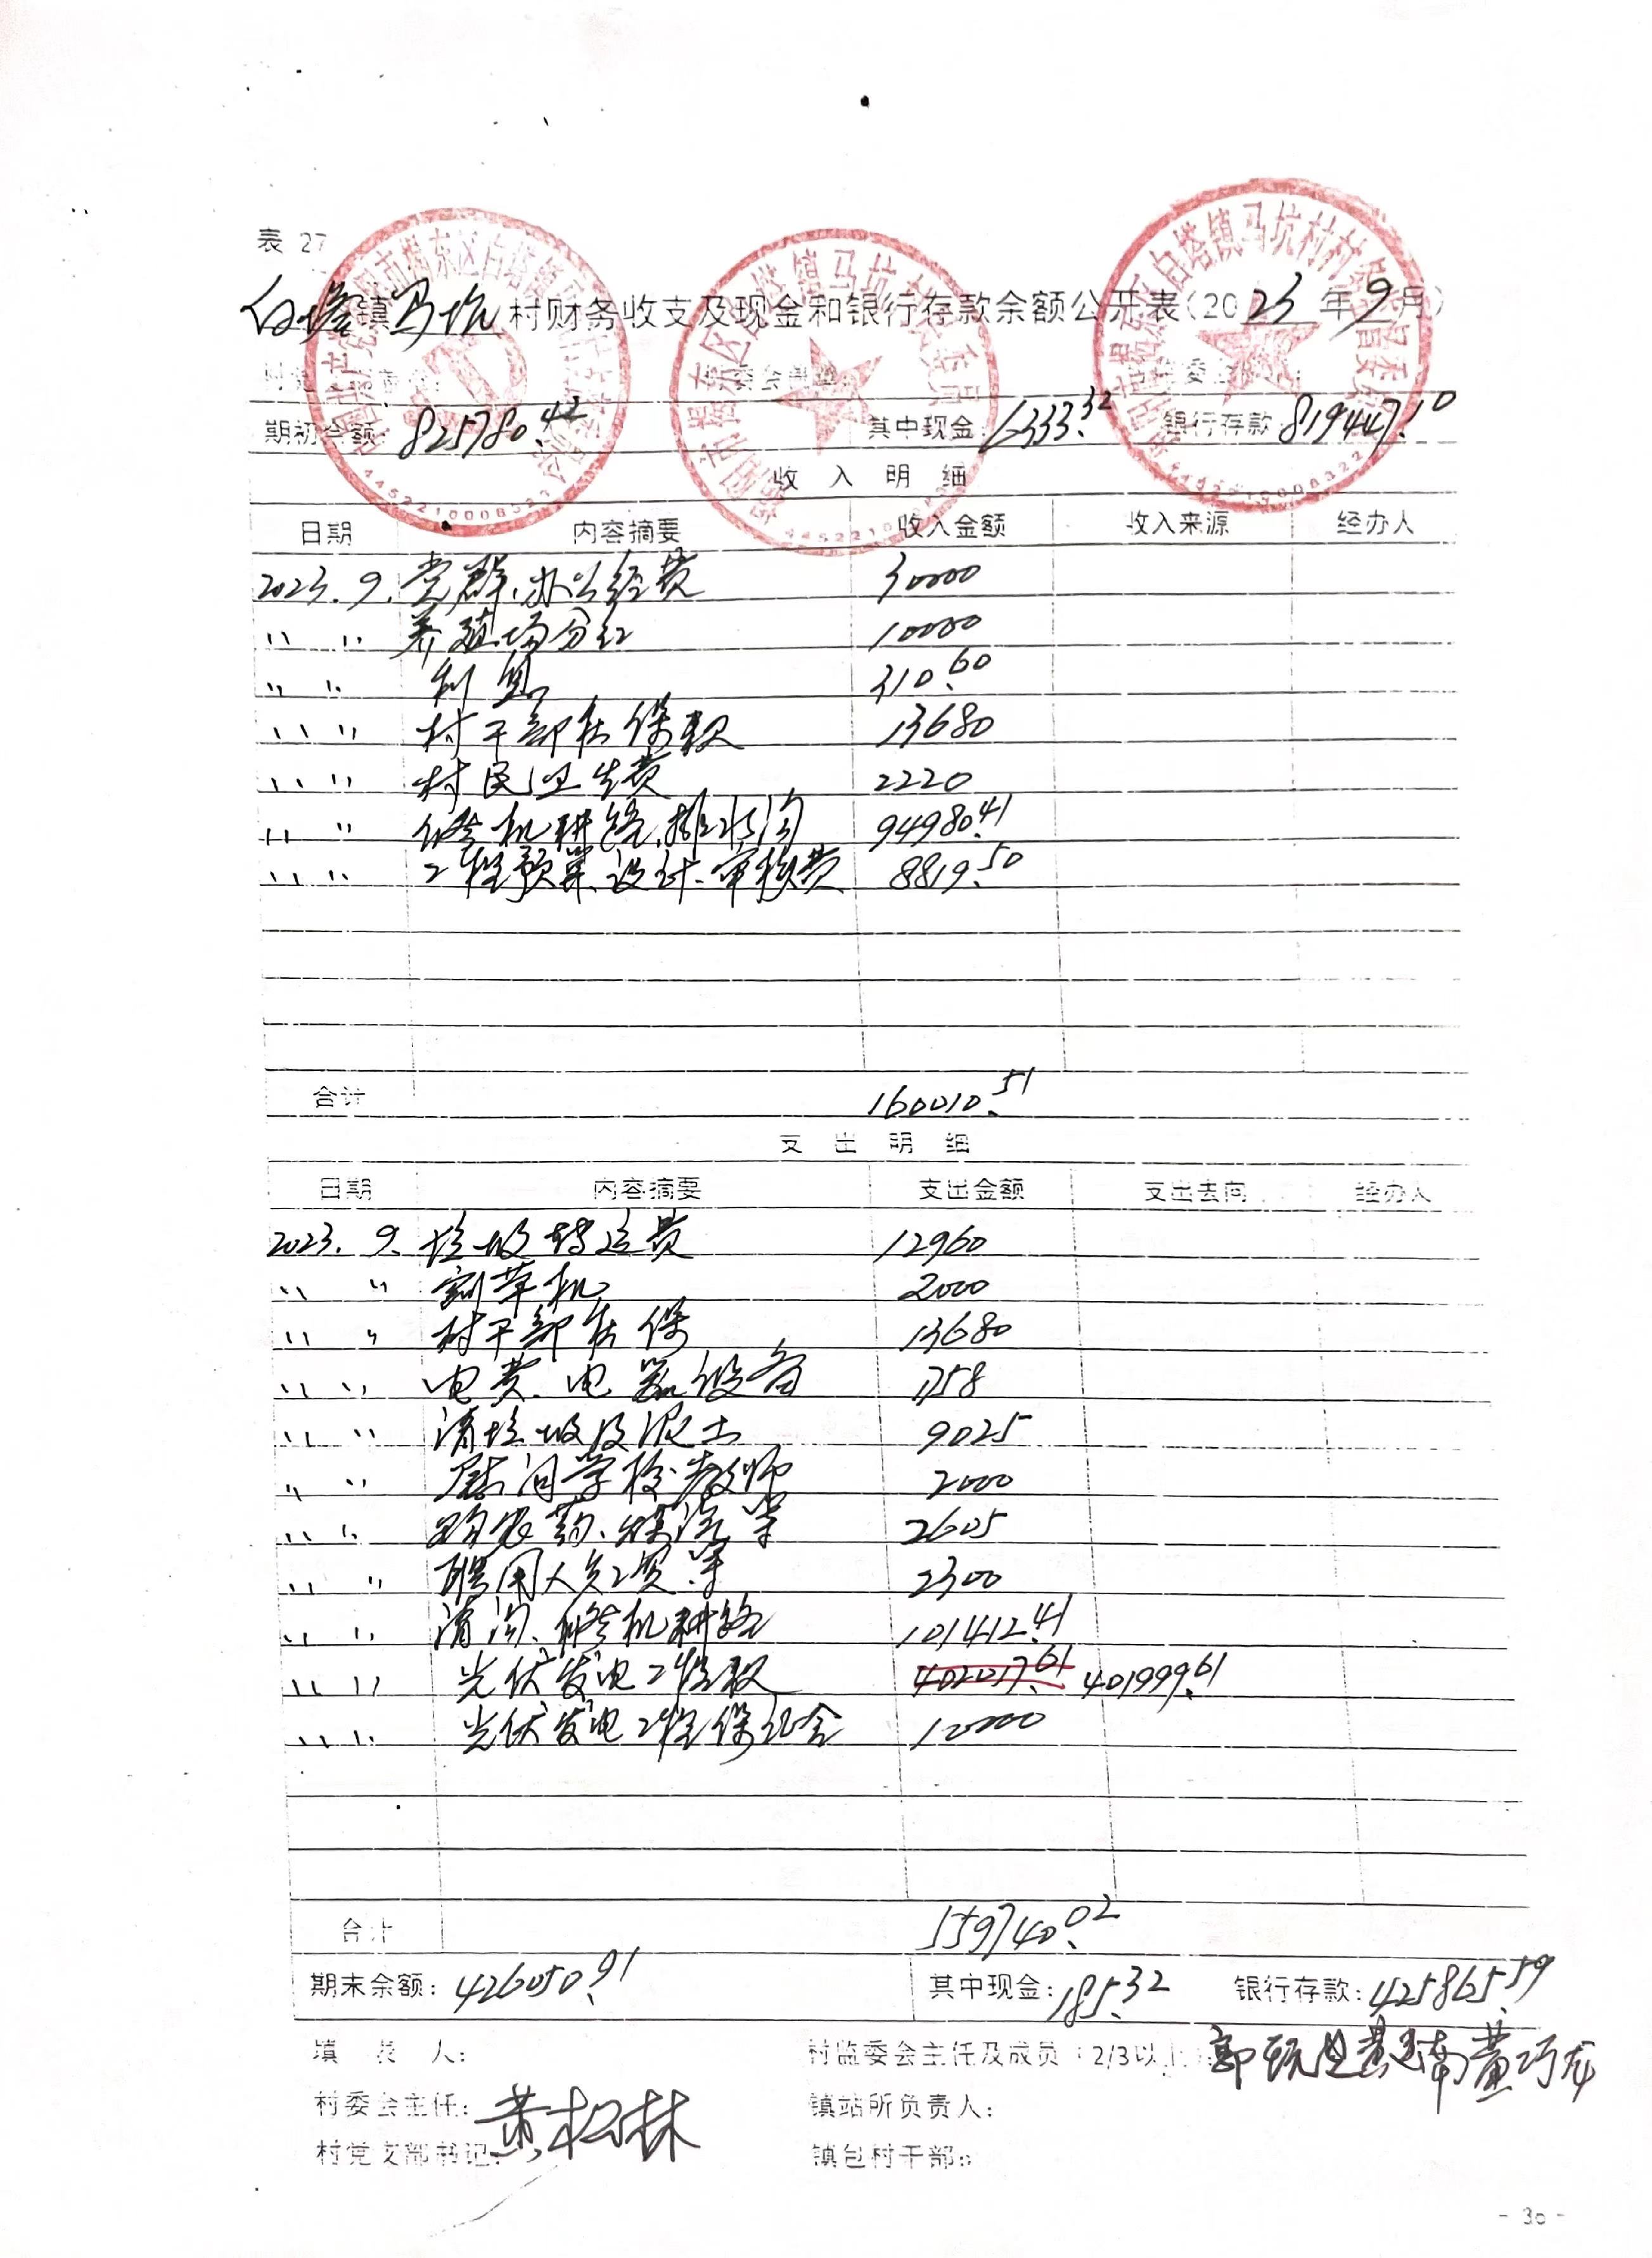 表 27
白塔镇马坑村财务收支及现金和银行存款余额公开表(2023年9月)
期初余额: 825780.42 其中现金: 6333.32 银行存款 819447.10
收 入 明 细
日期 内容摘要 收入金额 收入来源 经办人
2023.9. 党群、办公经费 30000
〃 〃 养殖场分红 10000
〃 〃 利息 310.60
〃 〃 村干部社保款 13680
〃 〃 村民卫生费 2220
〃 〃 修机耕路、排水沟 94980.41
〃 〃 工程预算、设计、审核费 8819.50
合计 160010.51
支 出 明 细
日期 内容摘要 支出金额 支出去向 经办人
2023.9. 垃圾转运费 12960
〃 〃 割草机 2000
〃 〃 村干部社保 13680
〃 〃 电费、电器设备 1758
〃 〃 清垃圾及泥土 9025
〃 〃 慰问学校教师 2000
〃 〃 购农药、 等 2605
〃 〃 聘用人员工资等 2300
〃 〃 清沟、修机耕路 101412.41
〃 〃 光伏发电工程款 402017.61 401999.61
〃 〃 光伏发电工程保证金 10000
合计 559740.02
期末余额: 426050.91 其中现金: 185.32 银行存款: 425865.59
填 表 人: 村监委会主任及成员(2/3以上):
村委会主任: 黄松林 镇站所负责人:
村党支部书记: 镇包村干部:
- 30 -